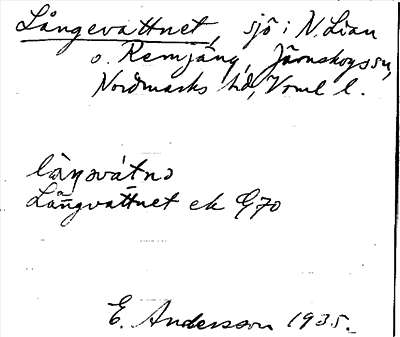 Långevattnet, sjö i N. Lian
o. Remjäng, Järnskogs sn,
Nordmarks hd, Vrml l.
làŋəvátnə
Långvattnet ek G70
E. Andersson 1935.